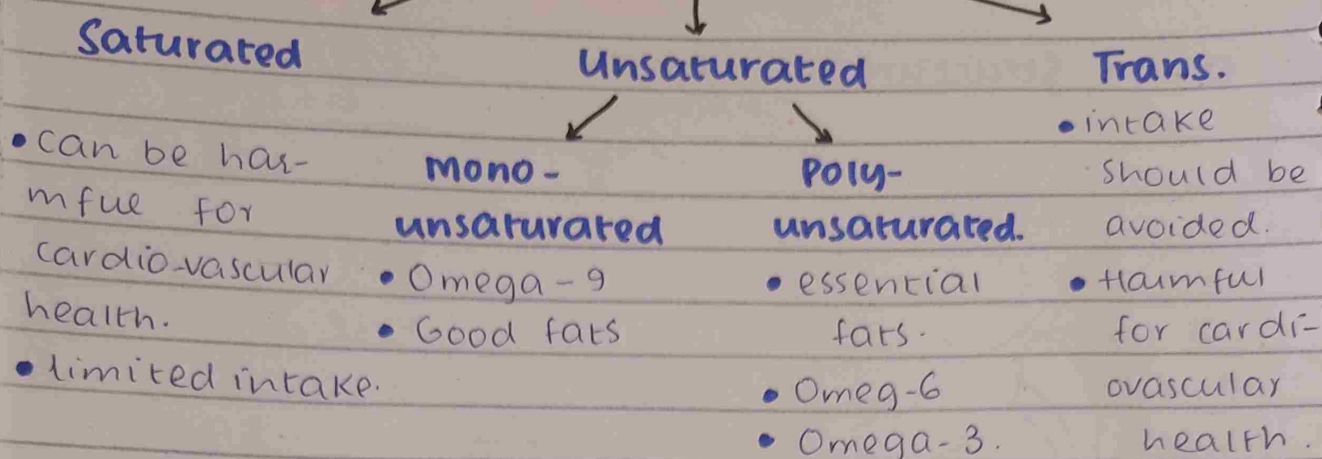 Saturated
• can be har-
mful for
cardio-vascular
health.
• limited intake.
Unsaturated
mono-
unsaturated
• Omega-9
• Good fats
Poly-
unsaturated.
• essential
fats.
• Omeg-6
• Omega-3.
Trans.
• intake
should be
avoided.
• Harmful
for cardi-
ovascular
health.